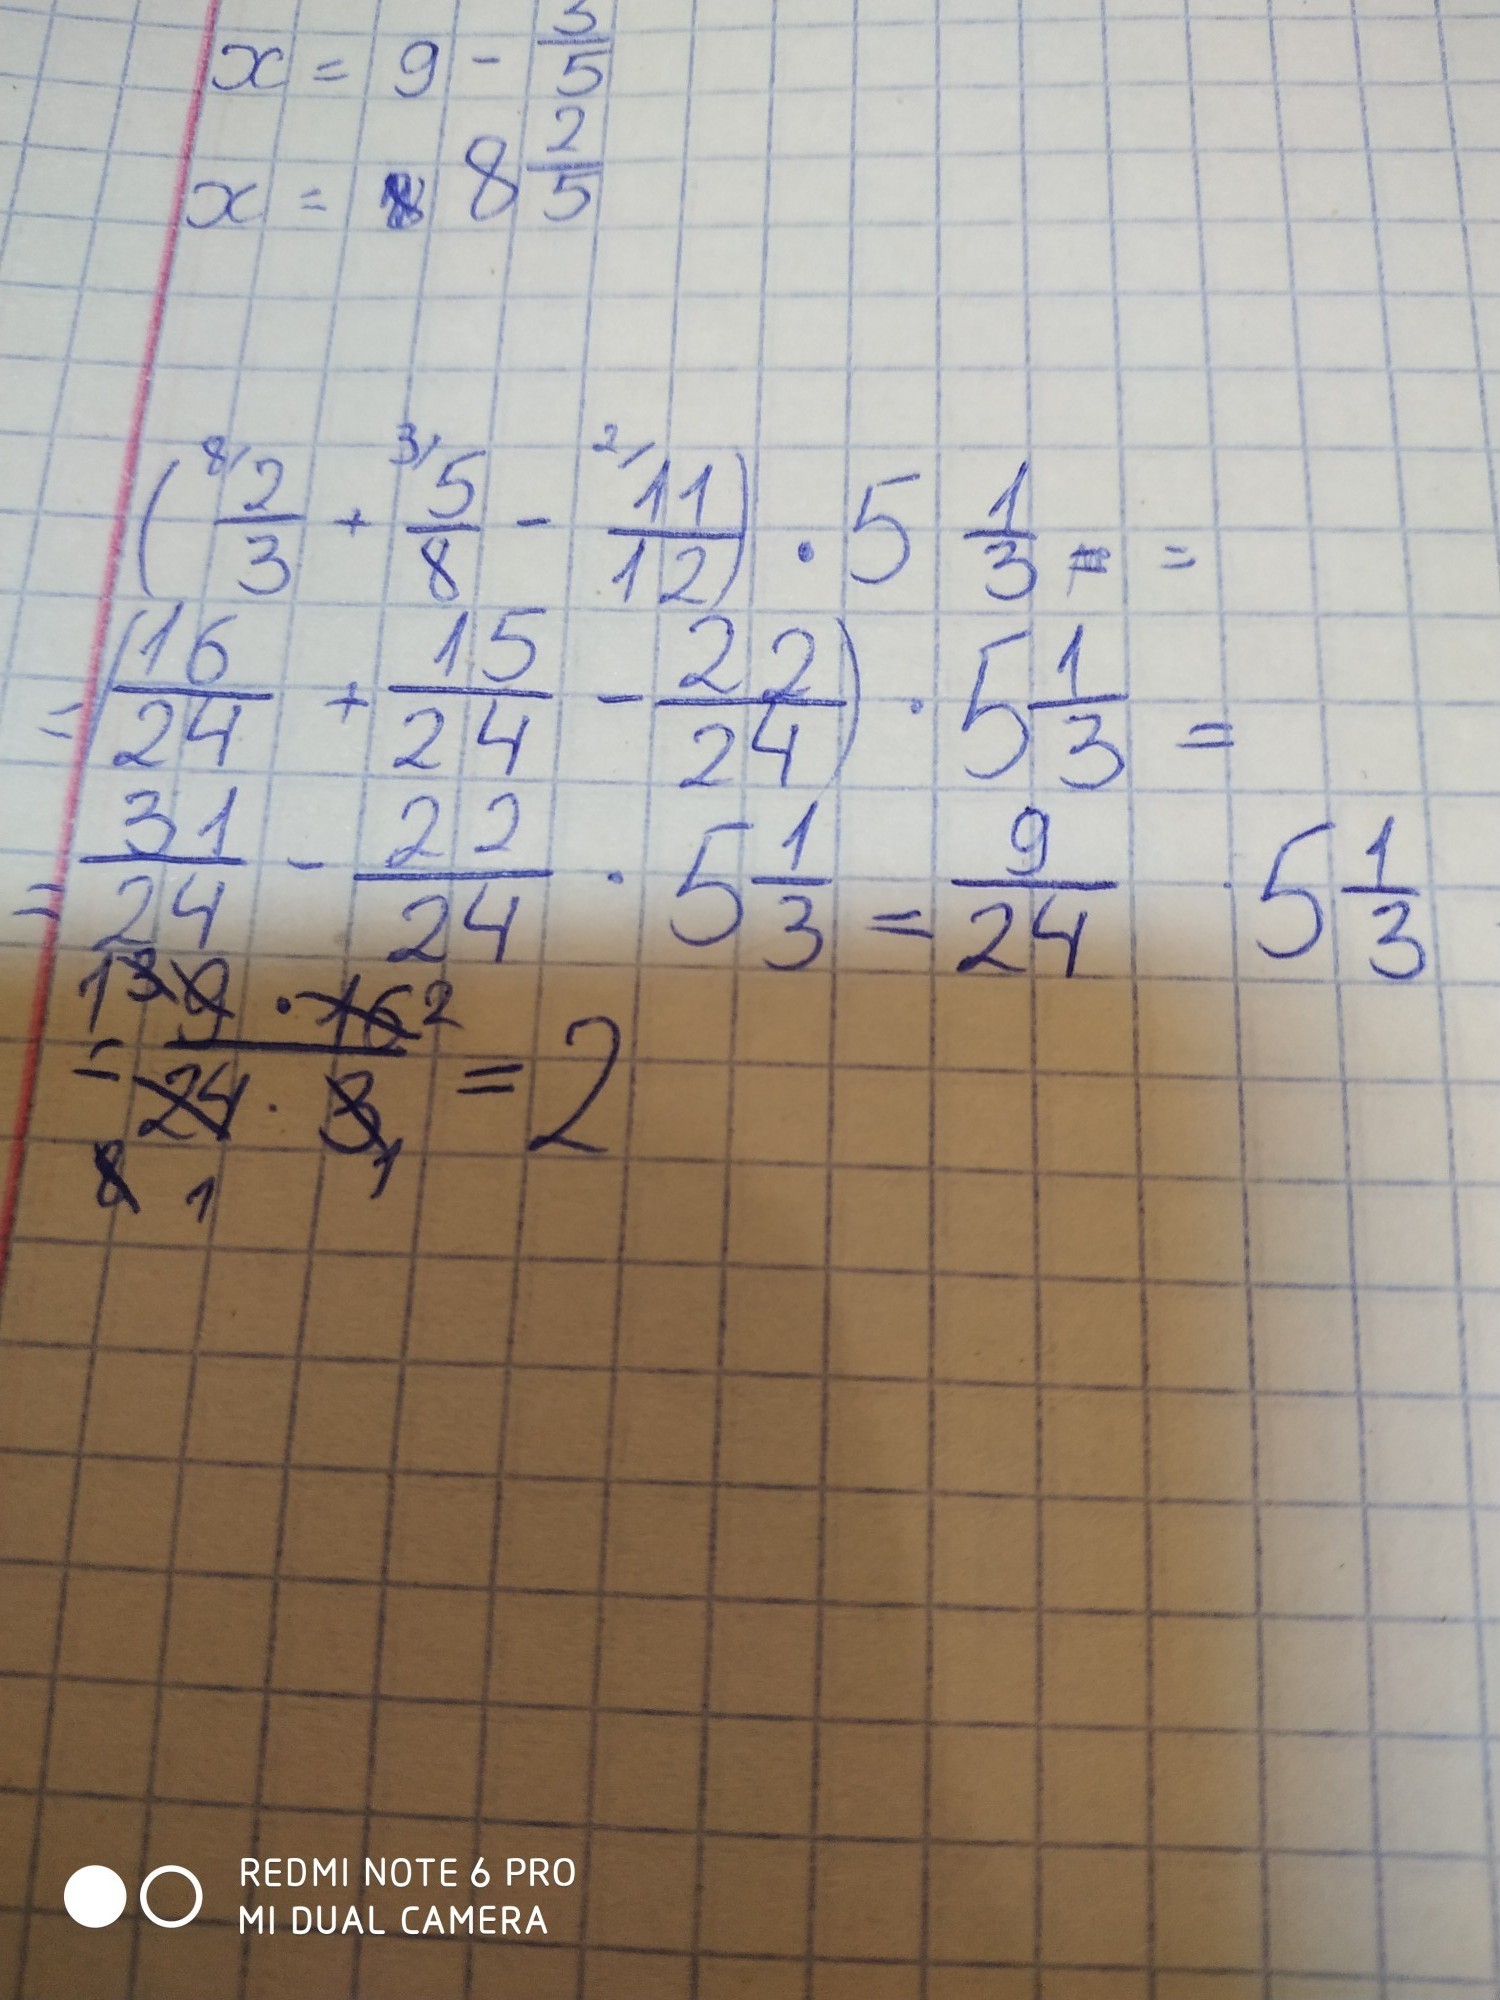 x = 9 - 3/5
x = 8 2/5
(8/ 2/3 + 3/ 5/8 - 2/ 11/12) · 5 1/3 = =
= (16/24 + 15/24 - 22/24) · 5 1/3 =
= 31/24 - 22/24 · 5 1/3 = 9/24 · 5 1/3
= 1 3 9 · 16 2 / 24 · 3 = 2
8 1 1
REDMI NOTE 6 PRO
MI DUAL CAMERA